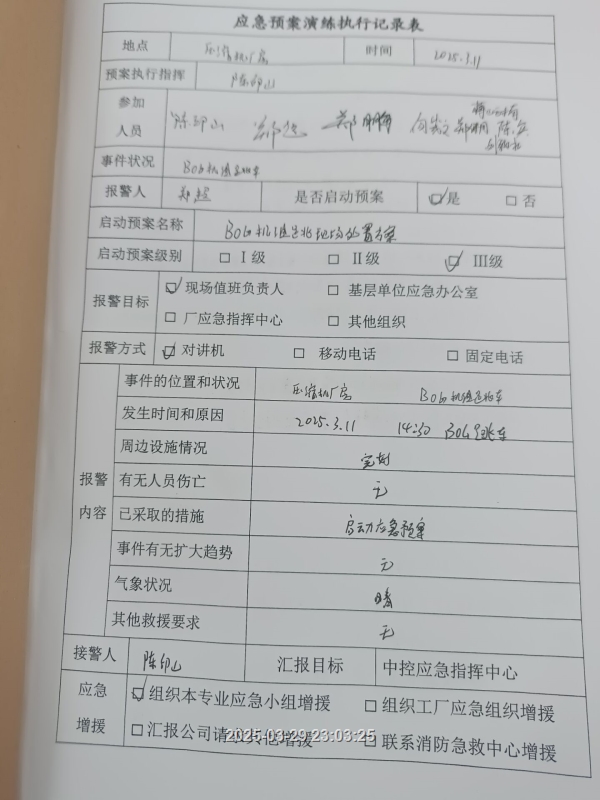 应急预案演练执行记录表
地点 压缩机厂房 时间 2025.3.11
预案执行指挥 陈印山
参加人员 陈印山 郑超 郑鹏
事件状况 BOG机
报警人 郑超 是否启动预案 ☑是 □否
启动预案名称 BOG机 现场处置方案
启动预案级别 □Ⅰ级 □Ⅱ级 ☑Ⅲ级
报警目标 ☑现场值班负责人 □基层单位应急办公室
□厂应急指挥中心 □其他组织
报警方式 ☑对讲机 □移动电话 □固定电话
报警内容
事件的位置和状况 压缩机厂房 BOG机
发生时间和原因 2025.3.11 14:30 BOG 跳车
周边设施情况 完好
有无人员伤亡 无
已采取的措施 启动应急预案
事件有无扩大趋势 无
气象状况 晴
其他救援要求 无
接警人 陈印山 汇报目标 中控应急指挥中心
应急增援 ☑组织本专业应急小组增援 □组织工厂应急组织增援
□汇报公司请求其他增援 □联系消防急救中心增援
2025-03-29 23:03:25